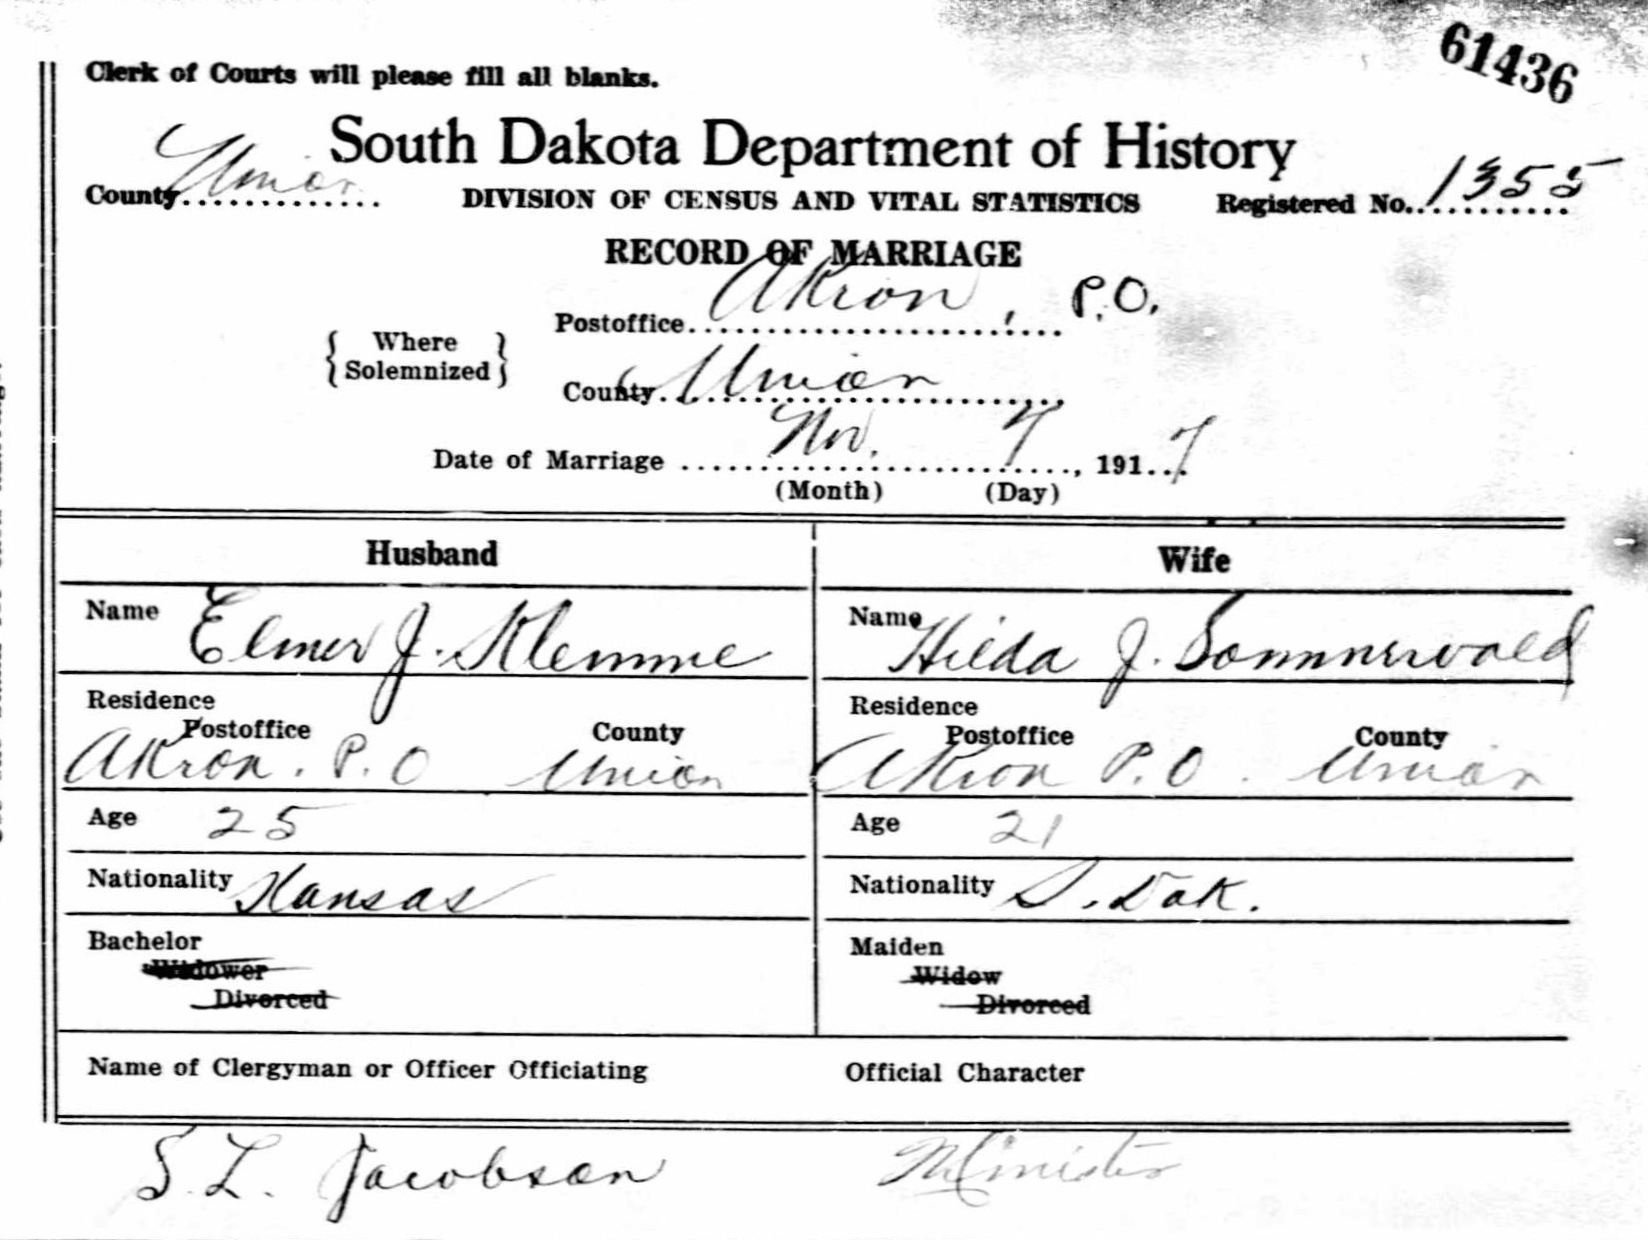 61436
Clerk of Courts will please fill all blanks.
South Dakota Department of History
County Union
DIVISION OF CENSUS AND VITAL STATISTICS
Registered No. 1355
RECORD OF MARRIAGE
Where Solemnized
Postoffice Akron, P.O.
County Union
Date of Marriage Nov. 7, 1917
(Month) (Day)
Husband
Wife
Name Elmer J. Klemme
Name Hilda J. Sommervold
Residence
Residence
Postoffice County
Postoffice County
Akron. P.O Union
Akron P.O. Union
Age 25
Age 21
Nationality Kansas
Nationality S. Dak.
Bachelor
Maiden
Widower
Widow
Divorced
Divorced
Name of Clergyman or Officer Officiating
Official Character
S. L. Jacobson
Minister